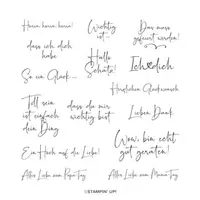 Hurra, hurra, hurra!
Wichtig ist...
Das muss
gefeiert werden!
dass ich dich
habe
Hallo
Schatz!
Ich dich
So ein Glück...
Herzlichen Glückwunsch
Toll sein
ist einfach
dein Ding
dass du mir
wichtig bist
Lieben Dank
Ein Hoch auf die Liebe!
Wow, bin echt
gut geraten!
Alles Liebe zum PapaTag
Alles Liebe zum MamaTag
©STAMPIN' UP!